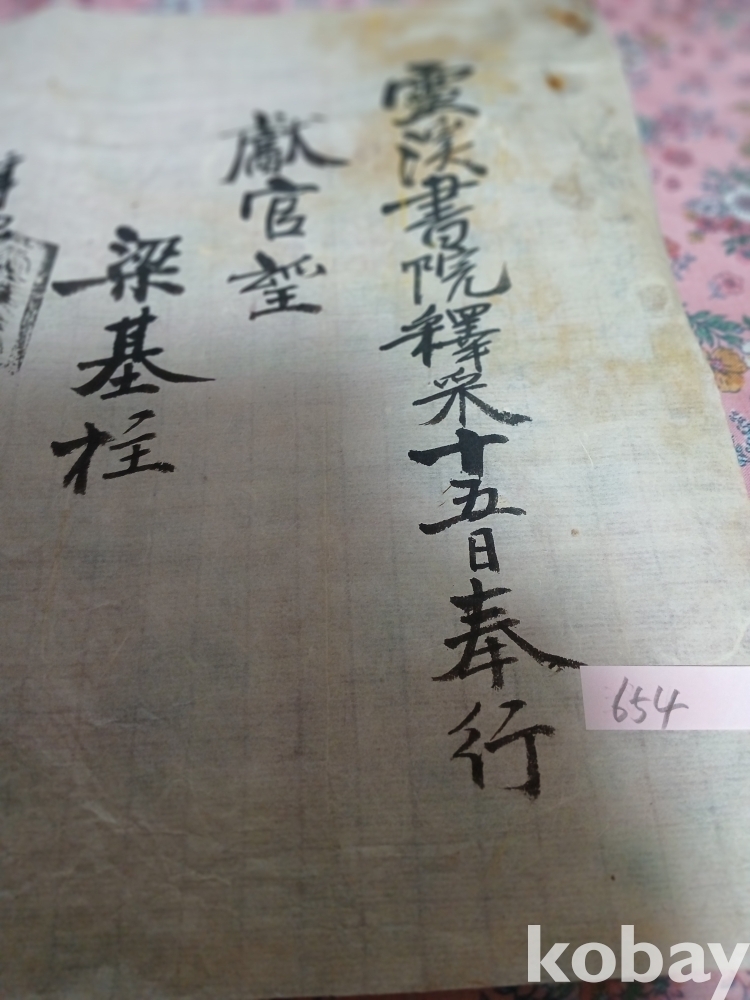 靈溪書院釋菜十五日奉行
獻官望
梁基柱
654
kobay